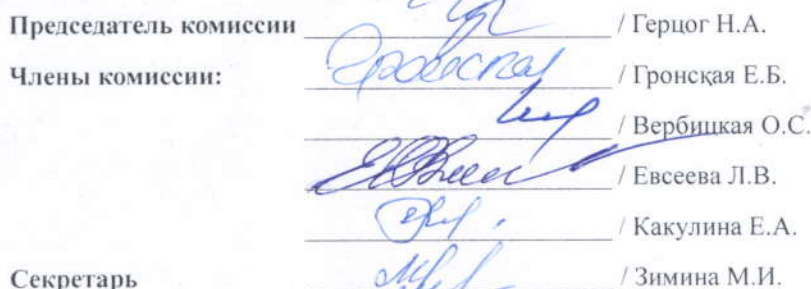 Председатель комиссии / Герцог Н.А.
Члены комиссии: Гронская / Гронская Е.Б.
/ Вербицкая О.С.
/ Евсеева Л.В.
/ Какулина Е.А.
Секретарь / Зимина М.И.